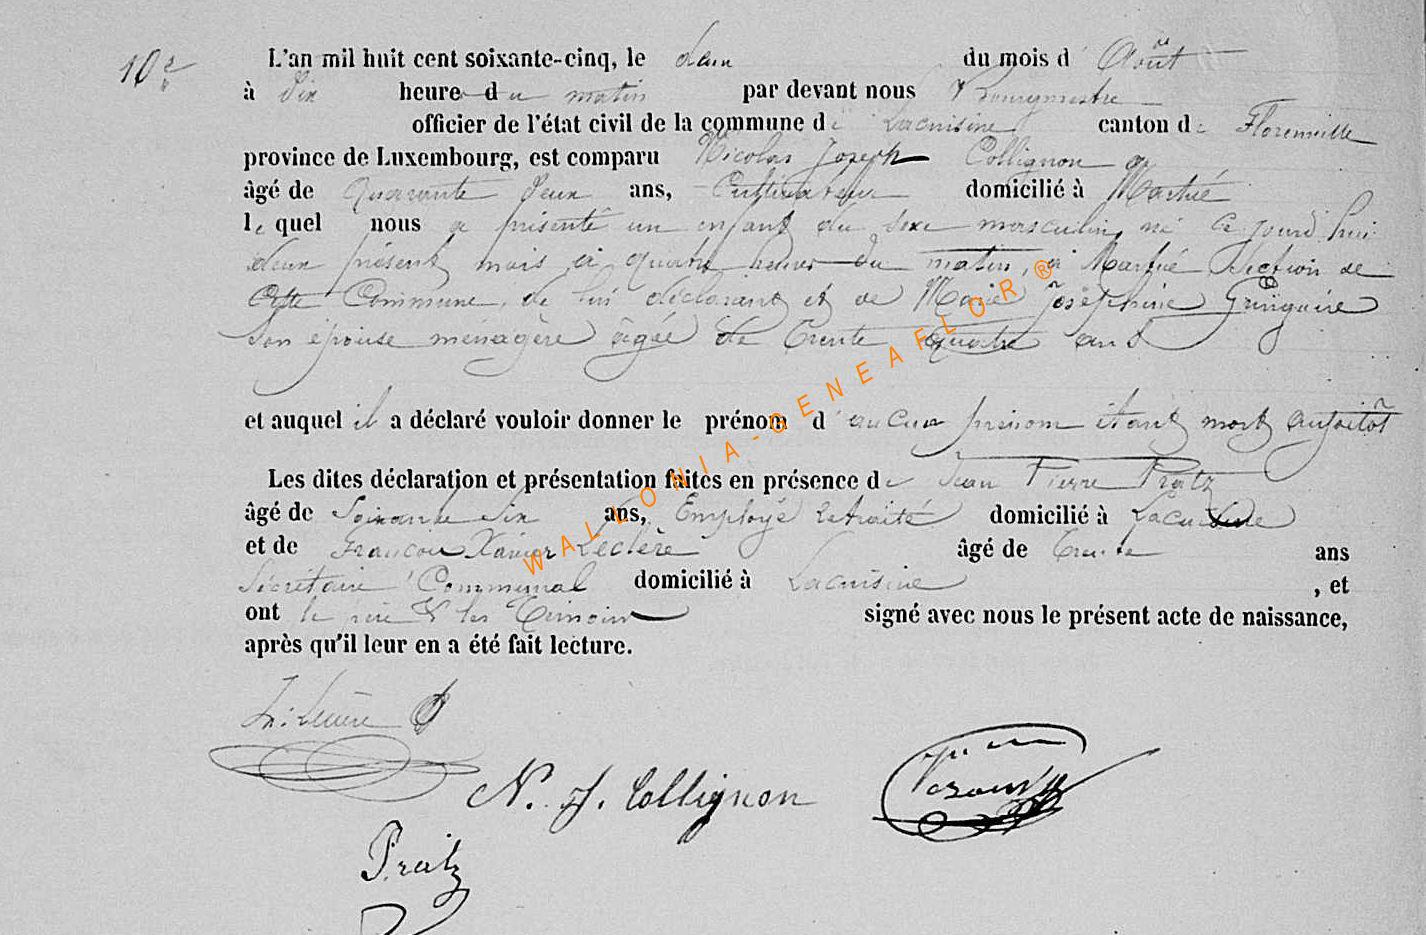 10e
L'an mil huit cent soixante-cinq, le deux du mois d'Août
à dix heure du matin par devant nous Bourgmestre
officier de l'état civil de la commune de Lacuisine canton de Florenville
province de Luxembourg, est comparu Nicolas Joseph Collignon
âgé de Quarante deux ans, Cultivateur domicilié à Martué
lequel nous a présenté un enfant du sexe masculin, né ce jourd'hui
deux présent mois à quatre heures du matin, à Martué Section de
Cette Commune, de lui déclarant et de Marie Joséphine Gringoire
Son épouse ménagère âgée de Trente quatre ans
et auquel il a déclaré vouloir donner le prénom d'aucun prénom étant mort aussitôt
Les dites déclaration et présentation faites en présence de Jean Pierre Pratz
âgé de Soixante Six ans, Employé retraité domicilié à Lacuisine
et de François Xavier Leclère âgé de Trente ans
Secrétaire Communal domicilié à Lacuisine, et
ont le père & les Témoins signé avec nous le présent acte de naissance,
après qu'il leur en a été fait lecture.
N. J. Collignon
Pratz
WALLONIA-GENEAFLOR®